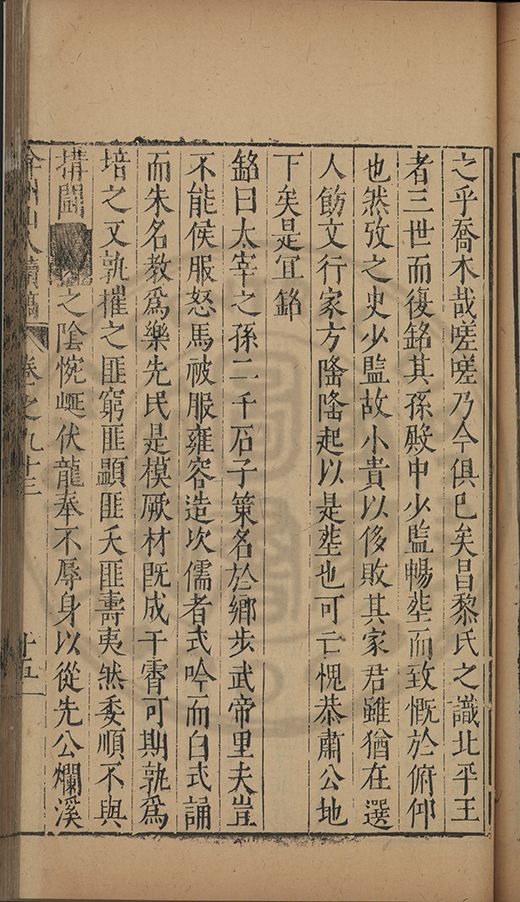 之乎喬木哉嗟嗟乃今俱已矣昌黎氏之識北平王
者三世而復銘其孫殿中少監暢塟而致慨於俯仰
也然攷之史少監故小貴以侈敗其家君雖猶在選
人飭文行家方隆隆起以是塟也可亡愧恭肅公地
下矣是宜銘
銘曰太宰之孫二千石子策名於鄉步武帝里夫豈
不能侯服怒馬被服雍容造次儒者式吟而白式誦
而朱名教為樂先民是模厥材既成干霄可期孰為
培之又孰摧之匪窮匪顯匪夭匪壽夷然委順不與
搆鬪之陰惋嶇伏龍奉不辱身以從先公爛溪
弇州山人續稿 卷之九十三 十五